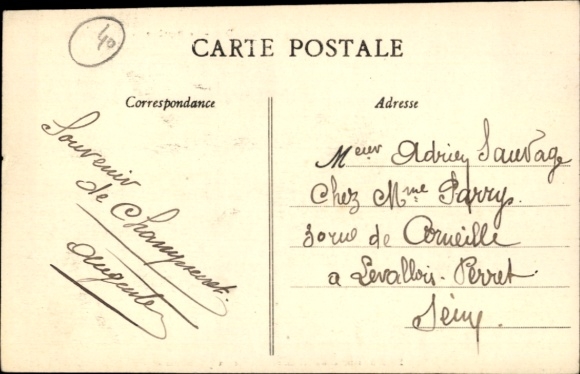 40
CARTE POSTALE
Correspondance
Adresse
Souvenir
de Champverret
Meur Adrien Sauvage
Chez Mme Parrys
30 rue de Corneille
a Levallois-Perret
Seine